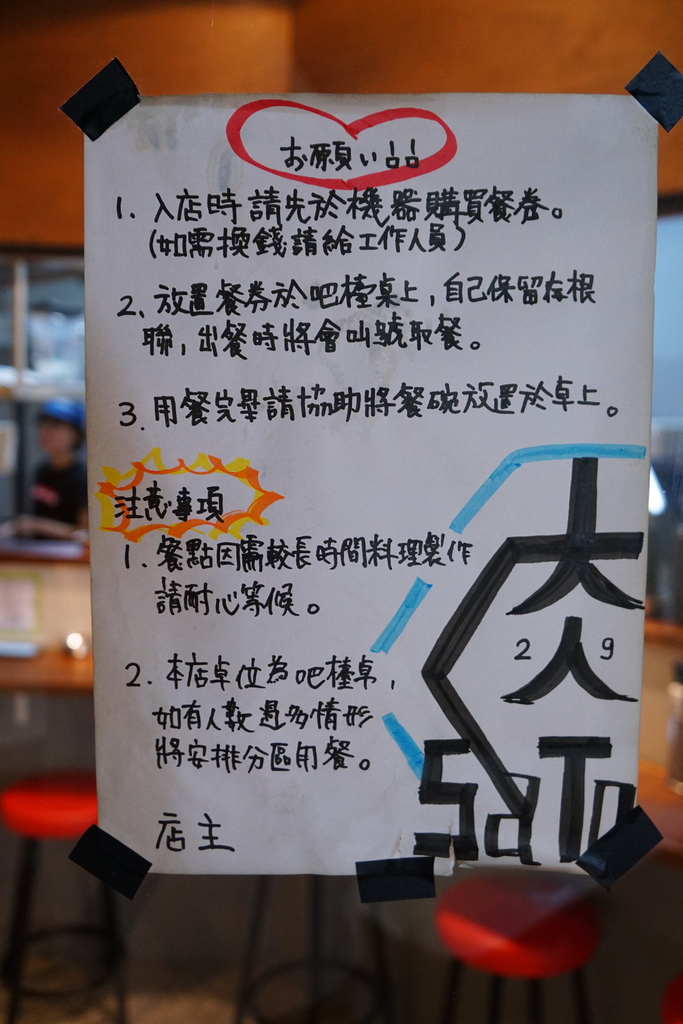 お願い品
1. 入店時請先於機器購買餐券。
(如需換錢請給工作人員)
2. 放置餐券於吧檯桌上,自己保留存根
聯,出餐時將會叫號取餐。
3. 用餐完畢請協助將餐碗放置於桌上。
注意事項
1. 餐點因需較長時間料理製作
請耐心等候。
2. 本店桌位為吧檯桌,
如有人數過多情形
將安排分區用餐。
店主
大
2 人 9
SaTo